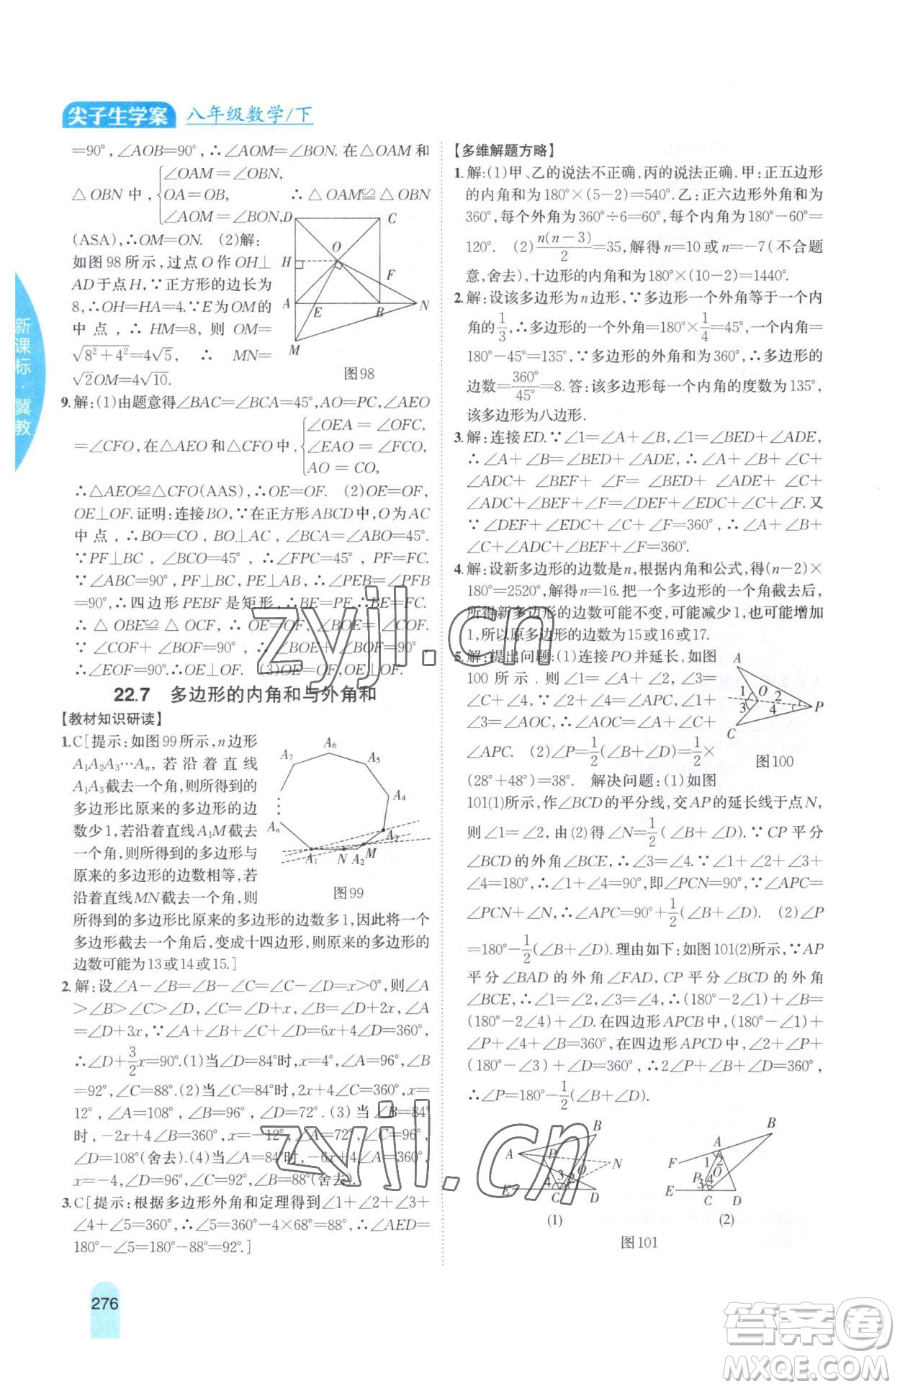 尖子生学案 八年级数学/下
=90°,∠AOB=90°,∴∠AOM=∠BON.在△OAM和
△OBN中,{∠OAM=∠OBN,
OA=OB,
∠AOM=∠BON,
∴△OAM≌△OBN
(ASA),∴OM=ON. (2)解:
如图98所示,过点O作OH⊥
AD于点H,∵正方形的边长为
8,∴OH=HA=4.∵E为OM的
中点,∴HM=8,则OM=
√8²+4²=4√5,∴MN=
√2OM=4√10.
D C O H F A E B N M
图98
9.解:(1)由题意得∠BAC=∠BCA=45°,AO=PC,∠AEO
=∠CFO,在△AEO和△CFO中,{∠OEA=∠OFC,
∠EAO=∠FCO,
AO=CO,
∴△AEO≌△CFO(AAS),∴OE=OF. (2)OE=OF,
OE⊥OF.证明:连接BO,∵在正方形ABCD中,O为AC
中点,∴BO=CO,BO⊥AC,∠BCA=∠ABO=45°.
∵PF⊥BC,∠BCO=45°,∴∠FPC=45°,∴PF=FC.
∵∠ABC=90°,PF⊥BC,PE⊥AB,∴∠PEB=∠PFB
=90°,∴四边形PEBF是矩形,∴BE=PF,∴BE=FC,
∴△OBE≌△OCF(SAS),∴OE=OF,∠BOE=∠COF.
∵∠COF+∠BOF=90°,∴∠BOE+∠BOF=90°,
∴∠EOF=90°,∴OE⊥OF. (3)OE=OF,OE⊥OF.
22.7 多边形的内角和与外角和
【教材知识研读】
1.C[提示:如图99所示,n边形
A₁A₂A₃…Aₙ,若沿着直线
A₁A₃截去一个角,则所得到的
多边形比原来的多边形的边
数少1,若沿着直线A₁M截去
一个角,则所得到的多边形与
原来的多边形的边数相等,若
沿着直线MN截去一个角,则
所得到的多边形比原来的多边形的边数多1,因此将一个
多边形截去一个角后,变成十四边形,则原来的多边形的
边数可能为13或14或15.]
A₆ A₇ A₅ A₄ A₃ M A₂ N A₁ Aₙ
图99
2.解:设∠A-∠B=∠B-∠C=∠C-∠D=x>0°,则∠A
>∠B>∠C>∠D,∠C=∠D+x,∠B=∠D+2x,∠A
=∠D+3x,∵∠A+∠B+∠C+∠D=6x+4∠D=360°,
∴∠D+3/2x=90°.(1)当∠D=84°时,x=4°,∠A=96°,∠B
=92°,∠C=88°.(2)当∠C=84°时,2x+4∠C=360°,x=
12°,∠A=108°,∠B=96°,∠D=72°. (3)当∠B=84°
时,-2x+4∠B=360°,x=-12°,∠A=72°,∠C=96°,
∠D=108°(舍去). (4)当∠A=84°时,-6x+4∠A=360°,
x=-4°,∠D=96°,∠C=92°,∠B=88°(舍去).
3.C[提示:根据多边形外角和定理得到∠1+∠2+∠3+
∠4+∠5=360°,∴∠5=360°-4×68°=88°,∴∠AED=
180°-∠5=180°-88°=92°.]
【多维解题方略】
1.解:(1)甲、乙的说法不正确,丙的说法正确.甲:正五边形
的内角和为180°×(5-2)=540°.乙:正六边形外角和为
360°,每个外角为360°÷6=60°,每个内角为180°-60°=
120°. (2)n(n-3)/2=35,解得n=10或n=-7(不合题
意,舍去),十边形的内角和为180°×(10-2)=1440°.
2.解:设该多边形为n边形,∵多边形一个外角等于一个内
角的1/3,∴多边形的一个外角为180°×1/4=45°,一个内角为
180°-45°=135°,∵多边形的外角和为360°,∴多边形的
边数=360°/45°=8.答:该多边形每一个内角的度数为135°,
该多边形为八边形.
3.解:连接ED.∵∠1=∠A+∠B,∠1=∠BED+∠ADE,
∴∠A+∠B=∠BED+∠ADE,∴∠A+∠B+∠C+
∠ADC+∠BEF+∠F=∠BED+∠ADE+∠C+
∠ADC+∠BEF+∠F=∠DEF+∠EDC+∠C+∠F.又
∵∠DEF+∠EDC+∠C+∠F=360°,∴∠A+∠B+
∠C+∠ADC+∠BEF+∠F=360°.
4.解:设新多边形的边数是n,根据内角和公式,得(n-2)×
180°=2520°,解得n=16.把一个多边形的一个角截去后,
所得新多边形的边数可能不变,可能减少1,也可能增加
1,所以原多边形的边数为15或16或17.
5.解:提出问题:(1)连接PO并延长,如图
100所示.则∠1=∠A+∠2,∠3=
∠C+∠4,∴∠1+∠3=∠A+∠2+
∠4+∠C,∴∠AOC=∠A+∠C+
∠APC. (2)∠P=1/2(∠B+∠D)=1/2×
(28°+48°)=38°. 解决问题:(1)如图
A 1 O 2 3 4 P C
图100
101(1)所示,作∠BCD的平分线,交AP的延长线于点N,
则∠1=∠2,由(2)得∠N=1/2(∠B+∠D).∵CP平分
∠BCD的外角∠BCE,∴∠3=∠4.∵∠1+∠2+∠3+
∠4=180°,∴∠1+∠4=90°,即∠PCN=90°,∴∠APC=
∠PCN+∠N,∴∠P=90°+1/2(∠B+∠D). (2)∠P
=180°-1/2(∠B+∠D).理由如下:如图101(2)所示,∵AP
平分∠BAD的外角∠FAD,CP平分∠BCD的外角
∠BCE,∴∠1=∠2,∠3=∠4,∴(180°-2∠1)+∠B=
(180°-2∠4)+∠D.在四边形APCB中,∠2+∠P+∠3+
∠B=360°,在四边形APCD中,∠2+∠P+∠4+
(180°-∠1)+∠D=360°,∴2∠P+∠B+∠D=360°,
∴∠P=180°-1/2(∠B+∠D).
A B P N E C D
(1)
B F A O P E C D
(2)
图101
新课标·冀教
276
zyjl.cn
zyjl.cn
答案圈
MXQE.COM